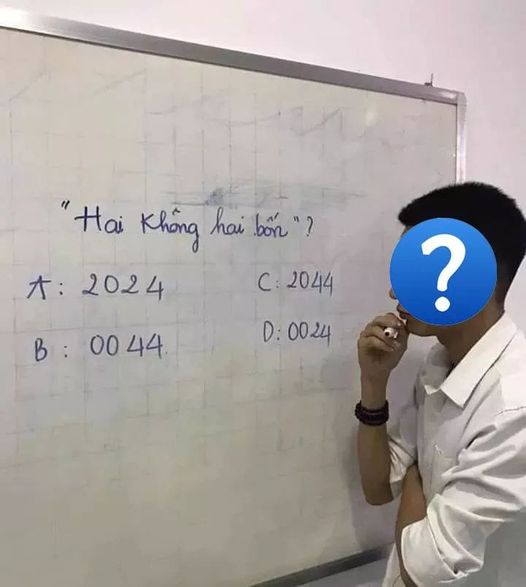 "Hai không hai bốn"?
A: 2024
C: 2044
B: 0044.
D: 0024
?